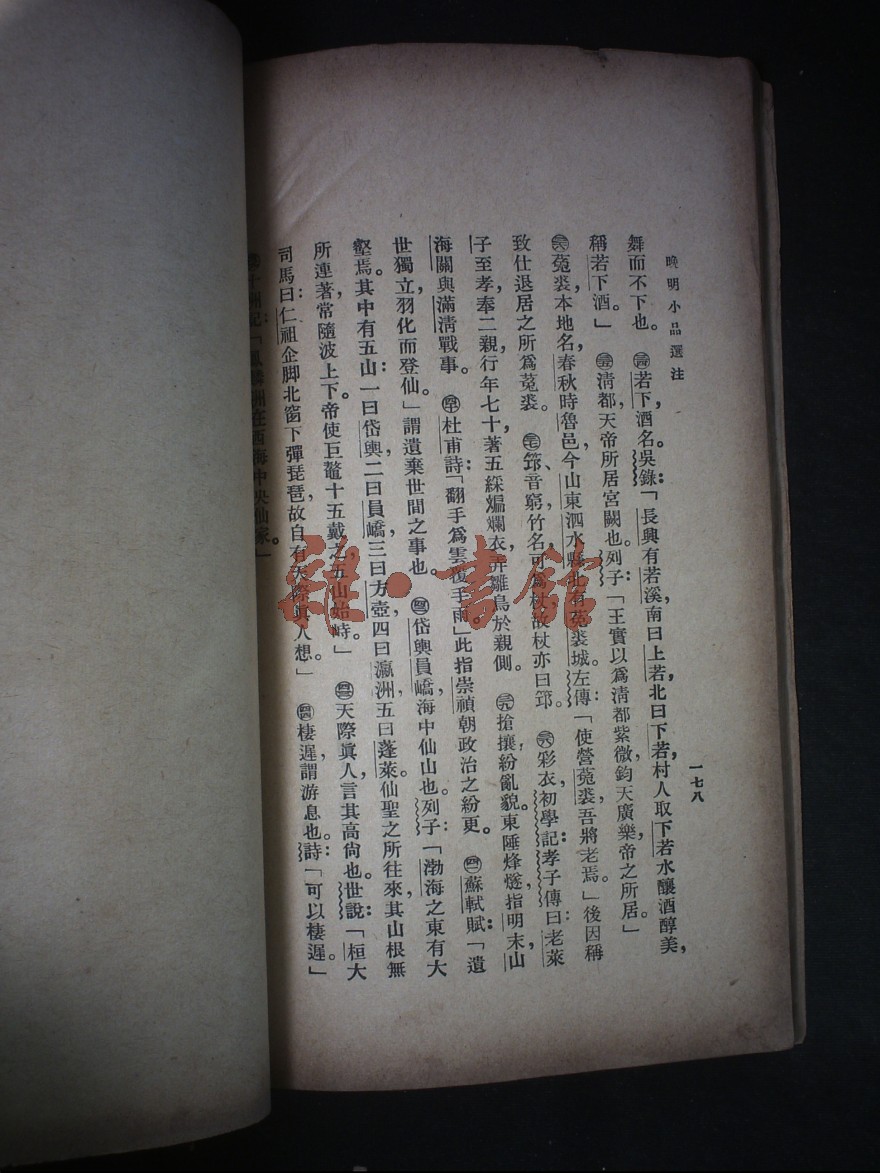 晚明小品選注
一七八
舞而不下也。若下，酒名。吳錄：「長興有若溪，南曰上若，北曰下若，村人取下若水釀酒醇美，
稱若下酒。」清都，天帝所居宮闕也。列子：「王實以爲清都紫微，鈞天廣樂，帝之所居。」
菟裘本地名，春秋時魯邑，今山東泗水縣北有菟裘城。左傳：「使營菟裘，吾將老焉。」後因稱
致仕退居之所爲菟裘。筇、音窮，竹名，可爲杖，故杖亦曰筇。彩衣，初學記：孝子傳曰：老萊
子至孝，奉二親，行年七十，著五綵斒斕衣，弄雛鳥於親側。搶攘，紛亂貌。東陲烽燧，指明末山
海關與滿清戰事。杜甫詩：「翻手爲雲覆手雨，」此指崇禎朝政治之紛更。蘇軾賦：「遺
世獨立，羽化而登仙。」謂遺棄世間之事也。岱輿員嶠，海中仙山也。列子：「渤海之東有大
壑焉。其中有五山，一曰岱輿，二曰員嶠，三曰方壺，四曰瀛洲，五曰蓬萊。仙聖之所往來，其山根無
所連著，常隨波上下。帝使巨鼇十五戴之，五山始峙。」天際眞人，言其高尙也。世說：「桓大
司馬曰：仁祖企脚北窗下彈琵琶，故自有天際眞人想。」棲遲，謂游息也。詩：「可以棲遲。」
十洲記：「鳳麟洲在西海中央，仙家」
雜·書館